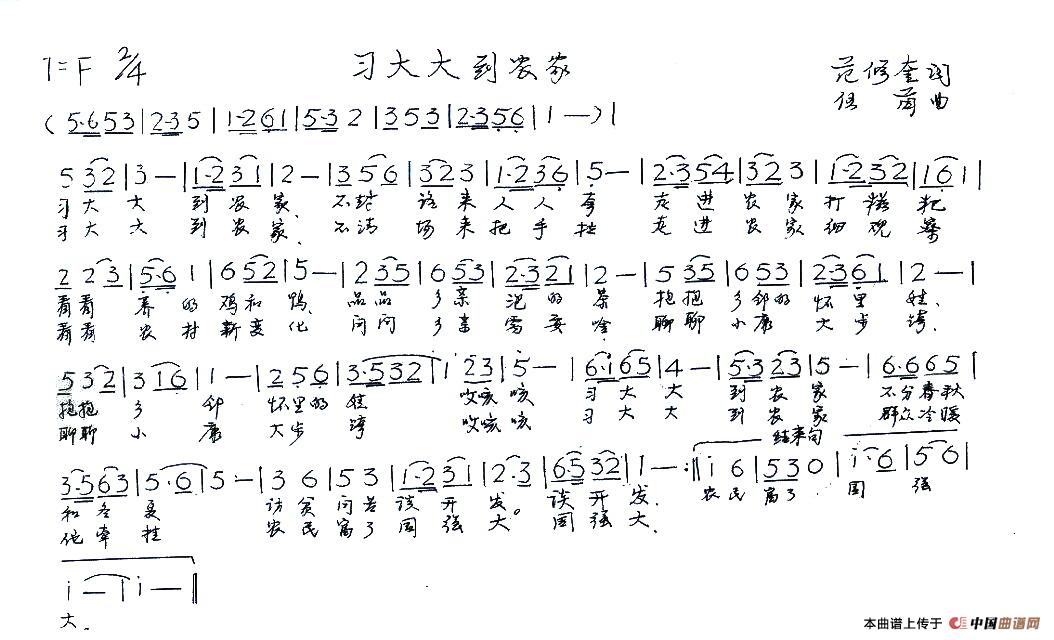 1=F 2/4 习大大到农家 范修奎词
曲
(5·653|2·35|1·261|5·32|353|2·356|1—)|
5 32|3—|1·231|2—|356|323|1·236|5—|2·354|323|1·232|161|
习大大到农家、不封路来人人夸 走进农家打糍粑
习大大到农家、不清场来把手拉 走进农家细观察
2 23|5·61|652|5—|235|653|2·321|2—|535|653|2·361|2—|
看看养的鸡和鸭、品品乡亲泡的茶 抱抱乡邻的怀里娃、
看看农村新变化 问问乡亲需要啥 聊聊小康大步跨、
532|316|1—|256|3·532|1 23|5—|6·165|4—|5·323|5—|6·665|
抱抱乡邻怀里的娃 哎咳咳 习大大到农家 不分春秋
聊聊小康大步跨 哎咳咳 习大大到农家 群众冷暖
结束句
3·563|5·6|5—|36|53|1·231|2·3|6532|1—:‖i6|530|i·6|56|
和冬夏 访贫问苦谈开发。谈开发、 农民富了国强
他牵挂 农民富了国强大。国强大、
i—|i—‖
大。
本曲谱上传于 中国曲谱网